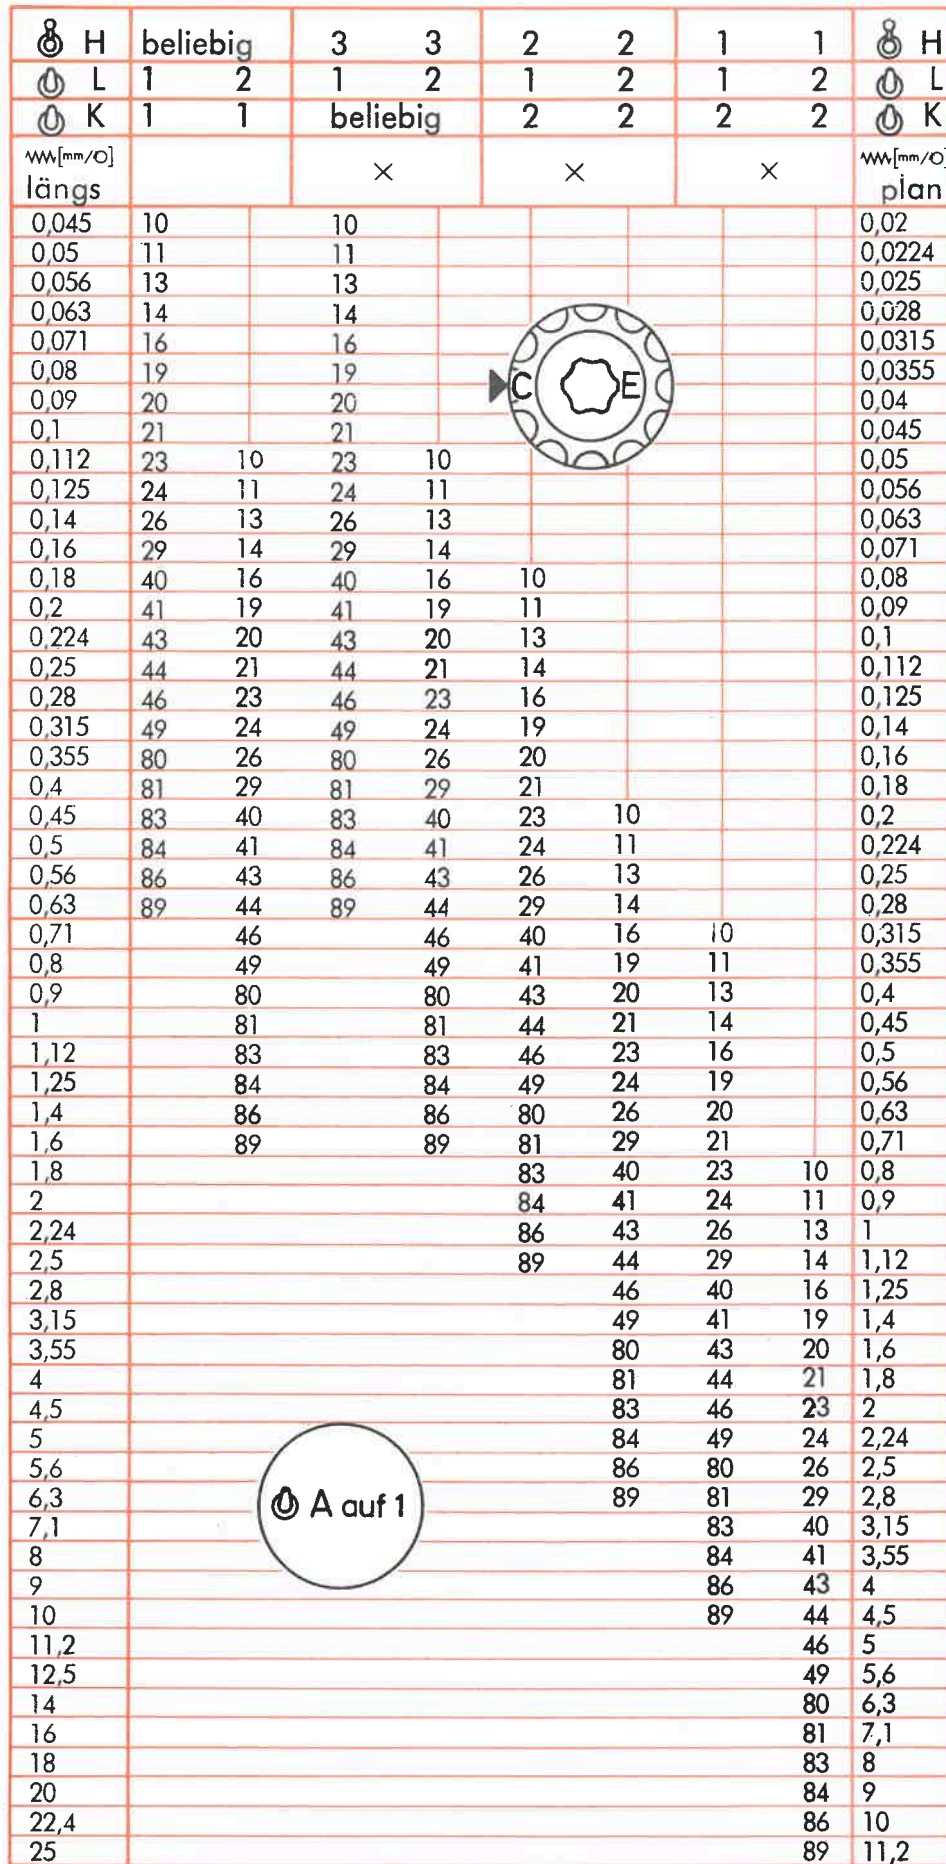 H beliebig 3 3 2 2 1 1 H
L 1 2 1 2 1 2 1 2 L
K 1 1 beliebig 2 2 2 2 K
[mm/O] × × × [mm/O]
längs plan
0,045 10 10 0,02
0,05 11 11 0,0224
0,056 13 13 0,025
0,063 14 14 0,028
0,071 16 16 0,0315
0,08 19 19 C E 0,0355
0,09 20 20 0,04
0,1 21 21 0,045
0,112 23 10 23 10 0,05
0,125 24 11 24 11 0,056
0,14 26 13 26 13 0,063
0,16 29 14 29 14 0,071
0,18 40 16 40 16 10 0,08
0,2 41 19 41 19 11 0,09
0,224 43 20 43 20 13 0,1
0,25 44 21 44 21 14 0,112
0,28 46 23 46 23 16 0,125
0,315 49 24 49 24 19 0,14
0,355 80 26 80 26 20 0,16
0,4 81 29 81 29 21 0,18
0,45 83 40 83 40 23 10 0,2
0,5 84 41 84 41 24 11 0,224
0,56 86 43 86 43 26 13 0,25
0,63 89 44 89 44 29 14 0,28
0,71 46 46 40 16 10 0,315
0,8 49 49 41 19 11 0,355
0,9 80 80 43 20 13 0,4
1 81 81 44 21 14 0,45
1,12 83 83 46 23 16 0,5
1,25 84 84 49 24 19 0,56
1,4 86 86 80 26 20 0,63
1,6 89 89 81 29 21 0,71
1,8 83 40 23 10 0,8
2 84 41 24 11 0,9
2,24 86 43 26 13 1
2,5 89 44 29 14 1,12
2,8 46 40 16 1,25
3,15 49 41 19 1,4
3,55 80 43 20 1,6
4 81 44 21 1,8
4,5 83 46 23 2
5 84 49 24 2,24
5,6 86 80 26 2,5
6,3 A auf 1 89 81 29 2,8
7,1 83 40 3,15
8 84 41 3,55
9 86 43 4
10 89 44 4,5
11,2 46 5
12,5 49 5,6
14 80 6,3
16 81 7,1
18 83 8
20 84 9
22,4 86 10
25 89 11,2